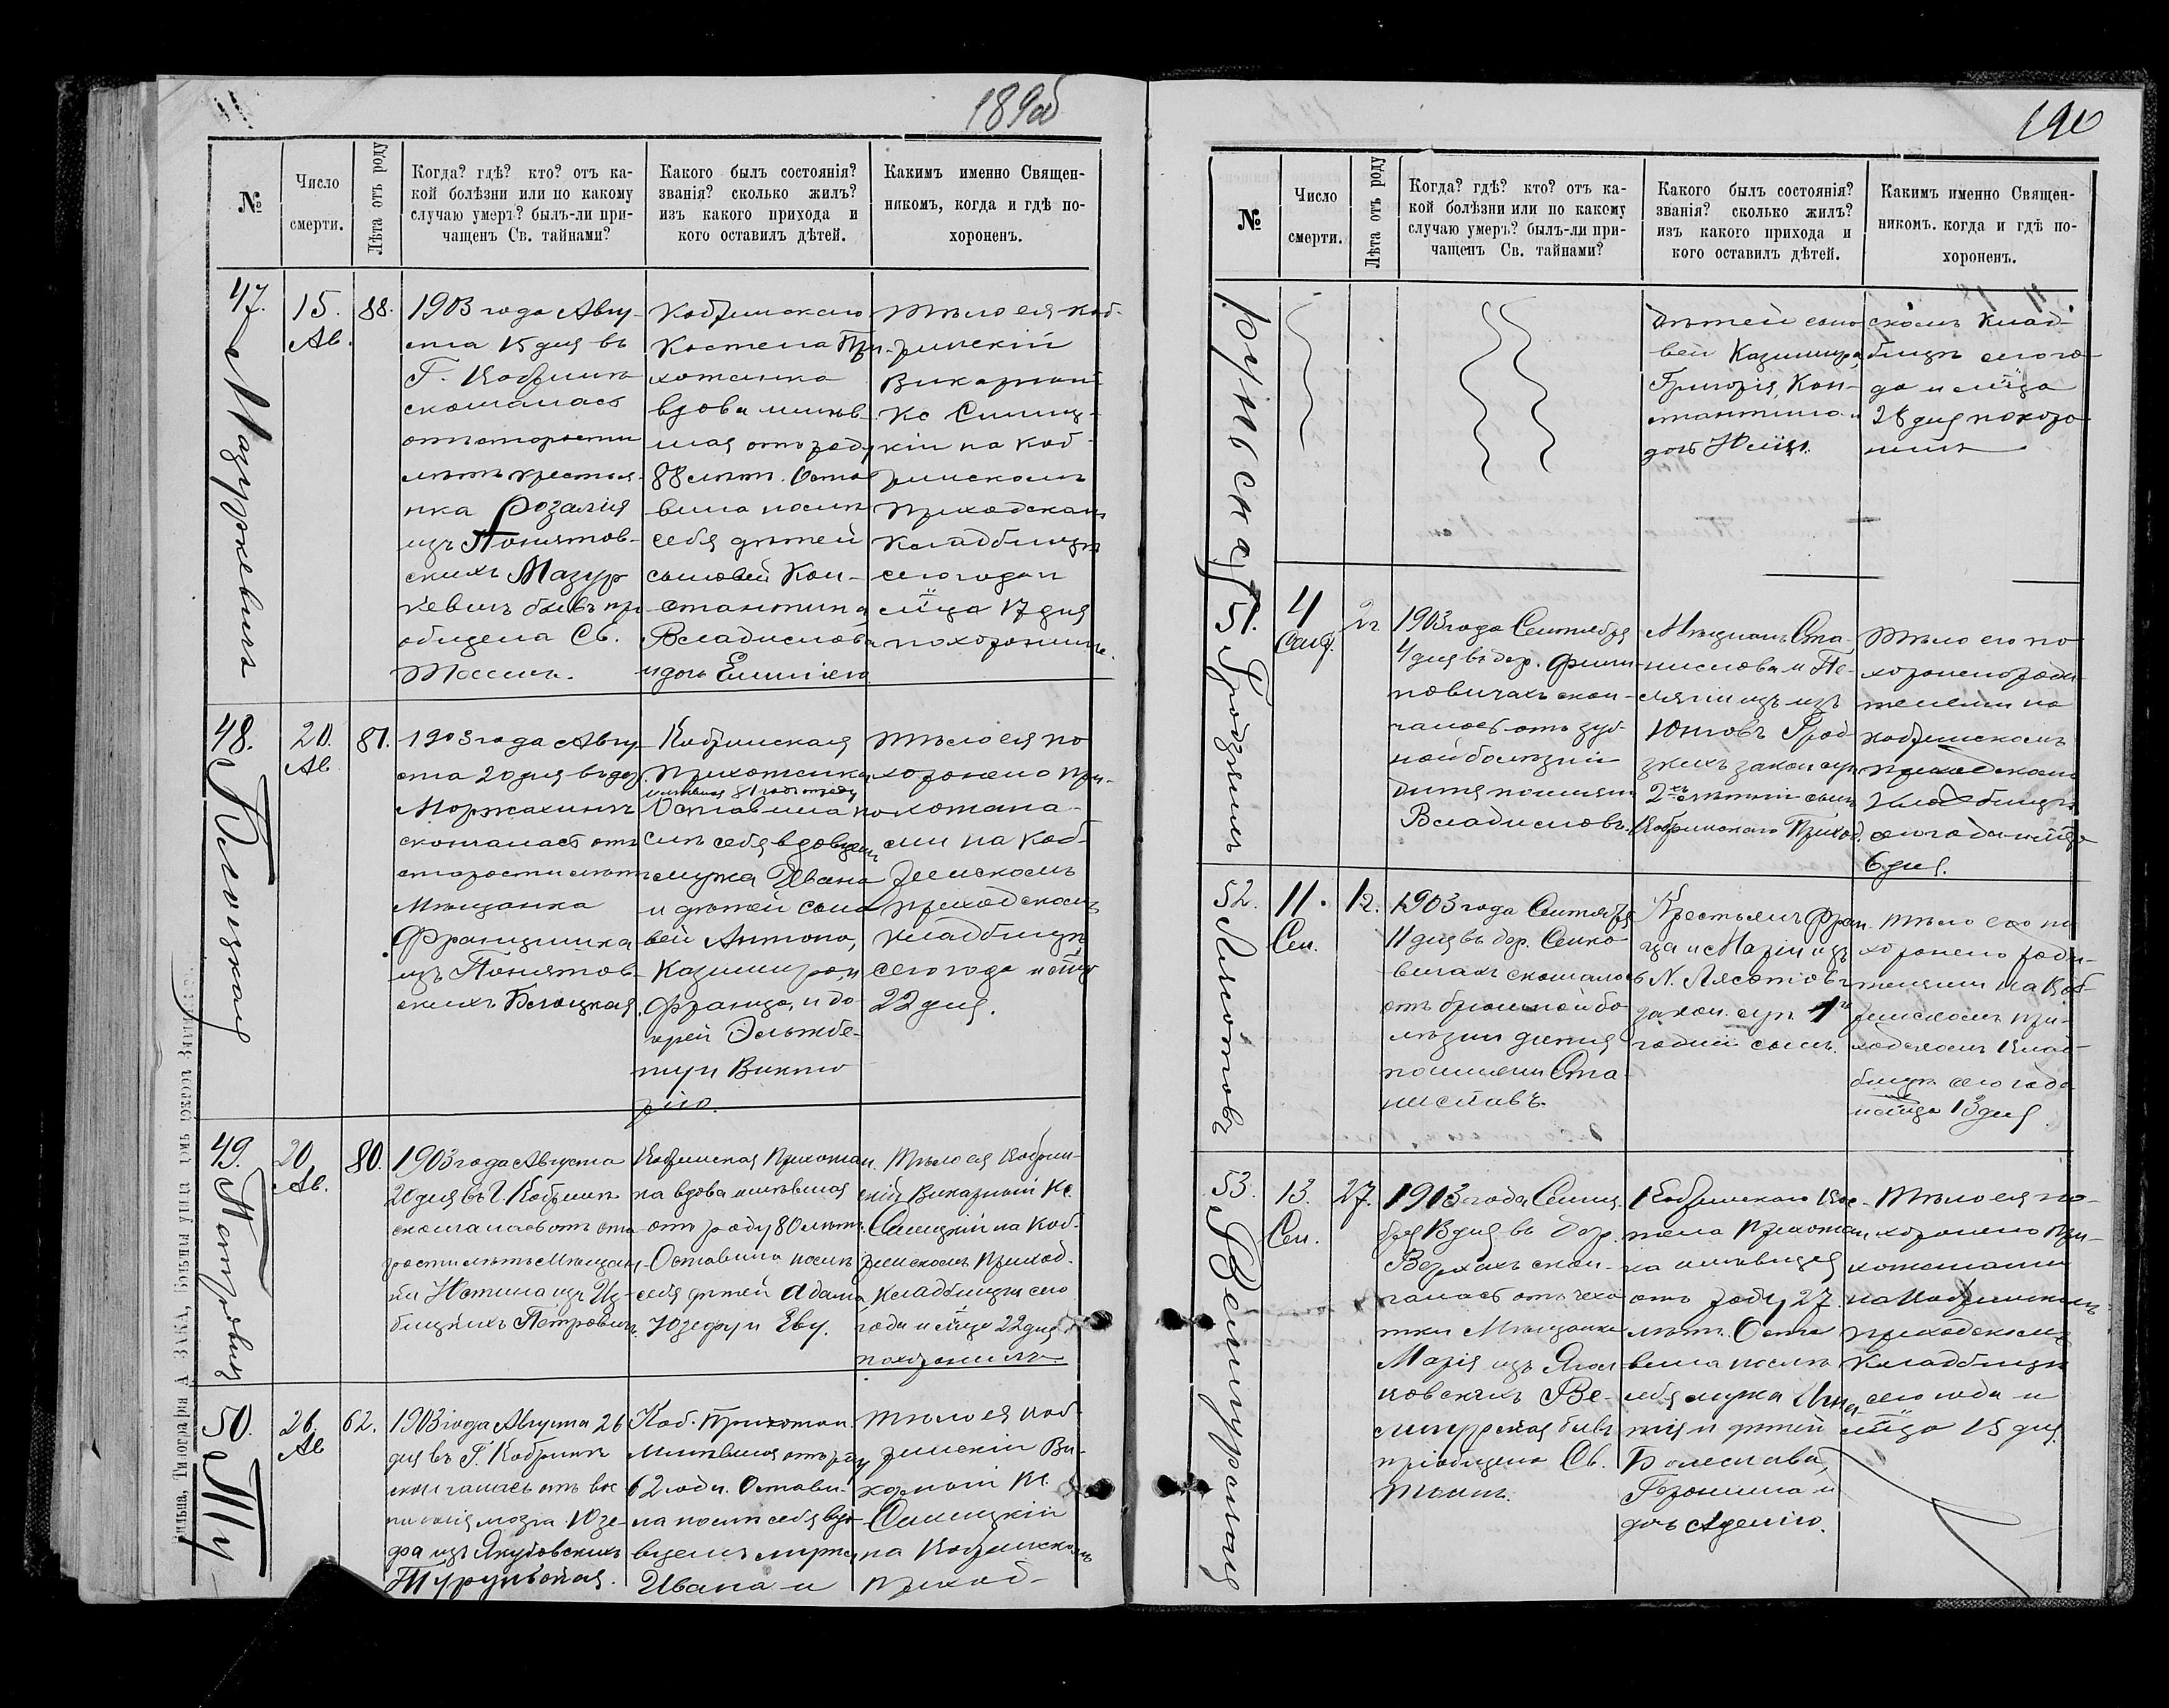 189об
№
Число
смерти.
Лѣта отъ роду
Когда? гдѣ? кто? отъ ка-
кой болѣзни или по какому
случаю умеръ? былъ-ли при-
чащенъ Св. тайнами?
Какого былъ состоянія?
званія? сколько жилъ?
изъ какого прихода и
кого оставилъ дѣтей.
Какимъ именно Священ-
никомъ, когда и гдѣ по-
хороненъ.
47.
Мазуркевичъ
15.
Ав.
88.
1903 года Авгу-
ста 15 дня въ
Г. Кобринѣ
скончалась
отъ старости
лѣтъ крестья-
нка Розалія
изъ Понятов-
скихъ Мазур
кевичъ бывъ пр
общена Св.
Кобринскаго
Костела При-
хожанка
вдова имѣв-
шая отъ роду
88 лѣтъ. Оста
вила послѣ
себя дѣтей
сыновей Кон-
стантина
Владислава
и дочь Емилію
Тѣло ея Коб-
ринскій
Викарный
Кс
кій на Коб-
ринскомъ
приходскомъ
кладбищѣ
сего года и
м̃ца 17 дня
похоронилъ.
48.
Бѣлоцкая
20.
Ав
81.
1903 года Авгу
ста 20 дня въ дер.
скончалась отъ
старости лѣтъ
Мѣщанка
Францишка
изъ Понятов-
скихъ Бѣлоцкая
Кобринская
прихожанка
имѣвшая 81 годъ отъ роду
Оставила по
слѣ себя вдовцемъ
мужа Ивана
и дѣтей сыно
вей Антона,
Казимира, и
Франца, и до-
черей Эльжбе-
ту и Викто
рію.
Тѣло ея по
хоронено при-
хожана-
ми на Коб-
ринскомъ
приходскомъ
кладбищѣ
сего года и м̃ца
22 дня.
49.
Петровичъ
20
Ав.
80.
1903 года Августа
20 дня въ Г. Кобринѣ
скончалась отъ ста
рости лѣтъ Мѣщан-
ка Юстина изъ Из-
бицкихъ Петровичъ.
Кобринская Прихожан.
ка вдова имѣвшая
отъ роду 80 лѣтъ.
Оставила послѣ
себя дѣтей Адама,
Юзефу и Еву.
Тѣло ея Кобрин-
скій Викарный Кс.
на Коб-
ринскомъ Приход.
Кладбищѣ сего
года и м̃ца 22 дня
похоронилъ.
50.
Ту
26
Ав
62.
1903 года Августа 26
дня въ Г. Кобринѣ
скончалась отъ вос
паленія мозга Юзе-
фа изъ Якубовскихъ
Турунская.
Коб. Прихожан.
имѣвшая отъ роду
62 года. Остави-
ла послѣ себя вдо-
вцемъ мужа
Ивана и
Тѣло ея Коб-
ринскій Ви-
карный Кс.
на Кобринскомъ
приход-
190
№
Число
смерти.
Лѣта отъ роду
Когда? гдѣ? кто? отъ ка-
кой болѣзни или по какому
случаю умеръ? былъ-ли при-
чащенъ Св. тайнами?
Какого былъ состоянія?
званія? сколько жилъ?
изъ какого прихода и
кого оставилъ дѣтей.
Какимъ именно Священ-
никомъ. когда и гдѣ по-
хороненъ.
рунская
дѣтей сыно
вей Казимира,
Григорія, Кон-
стантина и
дочь
скомъ Клад-
бищѣ сего го-
да и м̃ца
28 дня похоро-
нилъ
51.
Гродзкихъ
4
Сент.
2
1903 года Сентября
4 дня въ дер.
новичахъ скон-
чалось отъ зуб-
ной болѣзни
дитя именемъ
Владиславъ.
Мѣщанъ Ста-
нислава и Пе-
лягіи изъ
Юновъ Грод-
зкихъ закон. супр.
2хъ лѣтній сынъ
Кобринскаго Приход.
Тѣло его по
хоронено роди-
телями на
Кобринскомъ
приходскомъ
кладбищѣ
сего года и м̃ца
6 дня.
52.
Лясотовъ
11.
Сен.
1903 года Сентября
11 дня въ дер.
вичахъ скончалось
отъ брюшной бо-
лѣзни дитя
именемъ Ста-
ниславъ.
Крестьянъ Фран
ца и Маріи изъ
N. Лясотовъ
закон. супр.
годній сынъ.
Тѣло его по
хоронено роди-
телями на Коб-
ринскомъ при-
ходскомъ Клад-
бищѣ сего года
и м̃ца 13 дня.
53.
Велишурская
13.
Сен.
27.
1903 года Сентя-
бря 13 дня въ дер.
Верхахъ скон-
чалась отъ чехо
тки Мѣщанка
Марія изъ
новскихъ Ве-
бывъ
пріобщена Св.
Кобринскаго Кос-
тела Прихожан
ка имѣвшая
отъ роду 27.
лѣтъ. Оста
вила послѣ
себя мужа
и дѣтей
Болеслава,
Геронима и
дочь Аделію.
Тѣло ея по-
хоронено при-
хожанами
на Кобринскомъ
приходскомъ
Кладбищѣ
сего года и
м̃ца 15 дня.